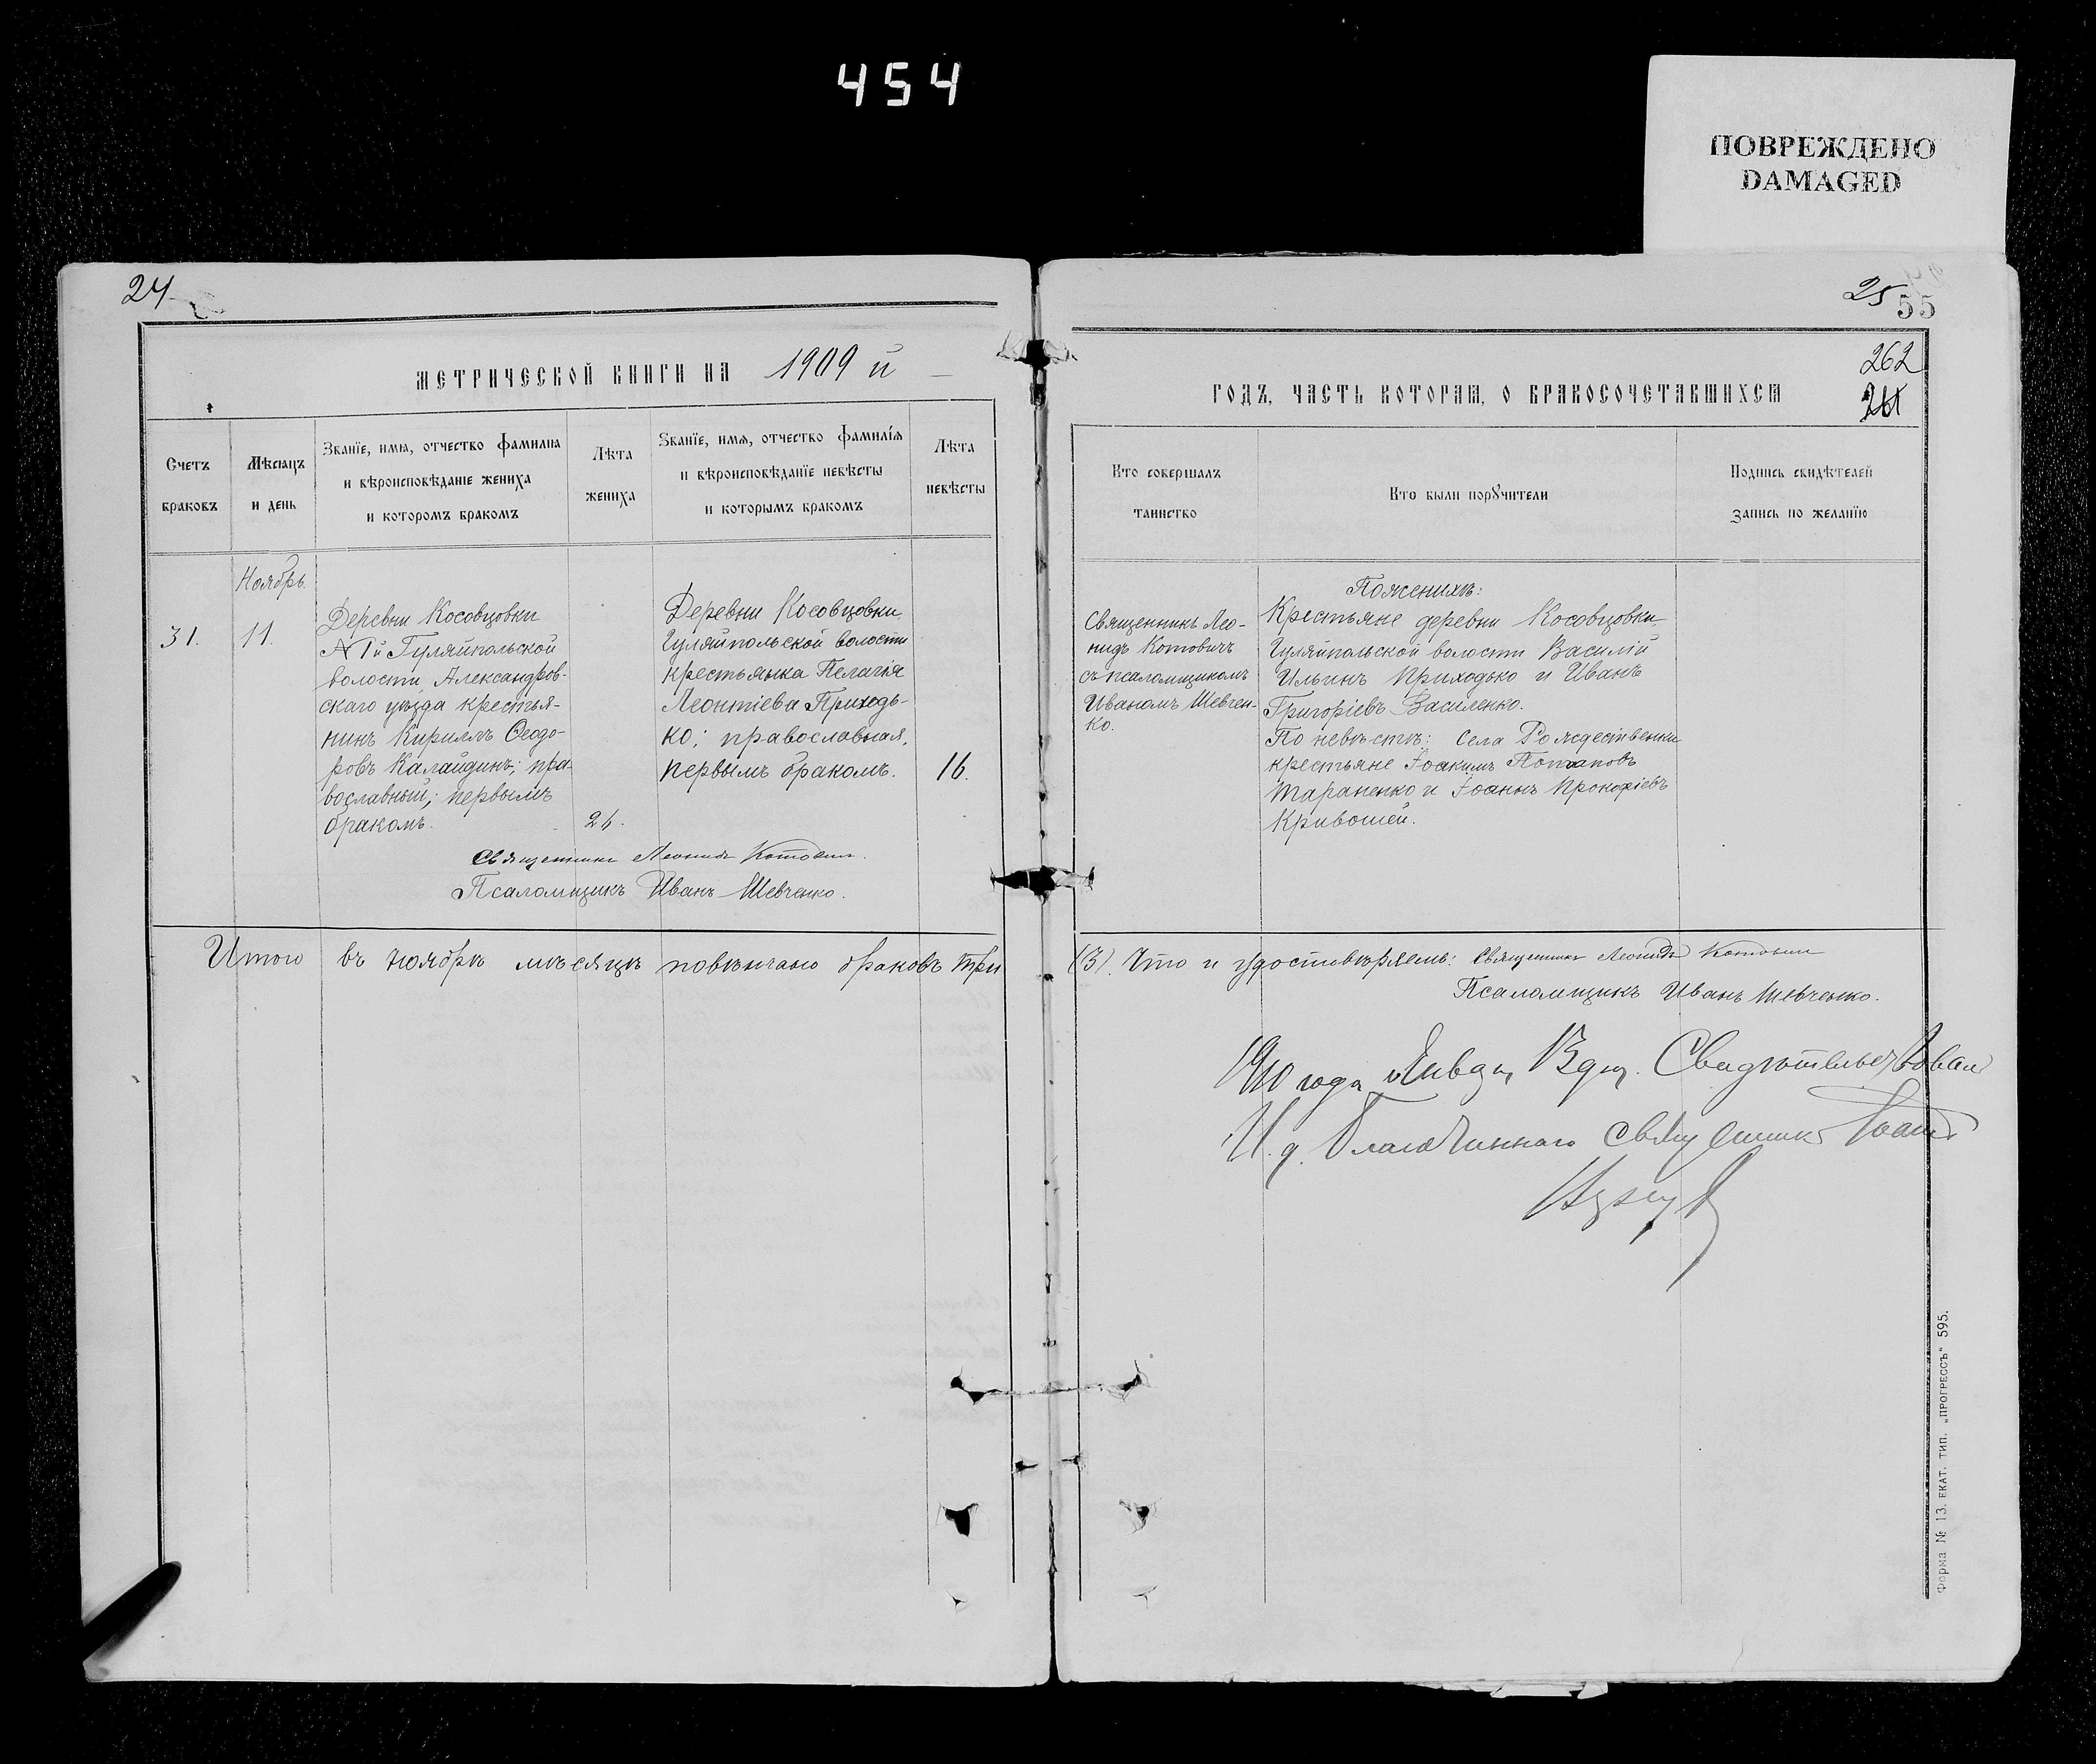 454
ПОВРЕЖДЕНО
DAMAGED
24
МЕТРИЧЕСКОЙ КНИГИ НА 1909 й
Счетъ
браковъ
Мѣсяцъ
и день
Званїе, имя, отчество фамилїя
и вѣроисповѣданїе жениха
и которомъ бракомъ
Лѣта
жениха
Званїе, имя, отчество фамилїя
и вѣроисповѣданїе невѣсты
и которымъ бракомъ
Лѣта
невѣсты
Ноябрь.
31.
11.
Деревни Косовцовки
№ 1й Гуляйпольской
волости Александров-
скаго уѣзда крестья-
нинъ Кириллъ Ѳеодо-
ровъ Калайдинъ; пра-
вославный; первымъ
бракомъ.
26.
Деревни Косовцовки
Гуляйпольской волости
крестьянка Пелагія
Леонтіева Приходь-
ко; православная,
первымъ бракомъ.
16.
Священникъ Леонидъ Котовичъ.
Псаломщикъ Иванъ Шевченко.
Итого въ ноябрѣ мѣсяцѣ повѣнчано браковъ три
25
55
262
261
ГОДЪ, ЧАСТЬ КОТОРАЯ, О БРАКОСОЧЕТАВШИХСЯ
Кто совершалъ
таинство
Кто были порȣчители
Подпись свидѣтелей
запись по желанїю
Священникъ Лео-
нидъ Котовичъ
съ псаломщикомъ
Иваномъ Шевчен-
ко.
По женихѣ:
Крестьяне деревни Косовцовки
Гуляйпольской волости Василій
Ильинъ Приходько и Иванъ
Григоріевъ Василенко.
По невѣстѣ: села Рождественки
крестьяне Іоакимъ Потаповъ
Тараненко и Іоаннъ Прокофіевъ
Кривошей.
(3). Что и удостовѣряемъ: Священникъ Леонидъ Котовичъ
Псаломщикъ Иванъ Шевченко.
1910 года Свидѣтельствовалъ
И. д. Благочиннаго Священникъ Іоаннъ
Форма № 13. ЕКАТ. ТИП. „ПРОГРЕССЪ“ 595.